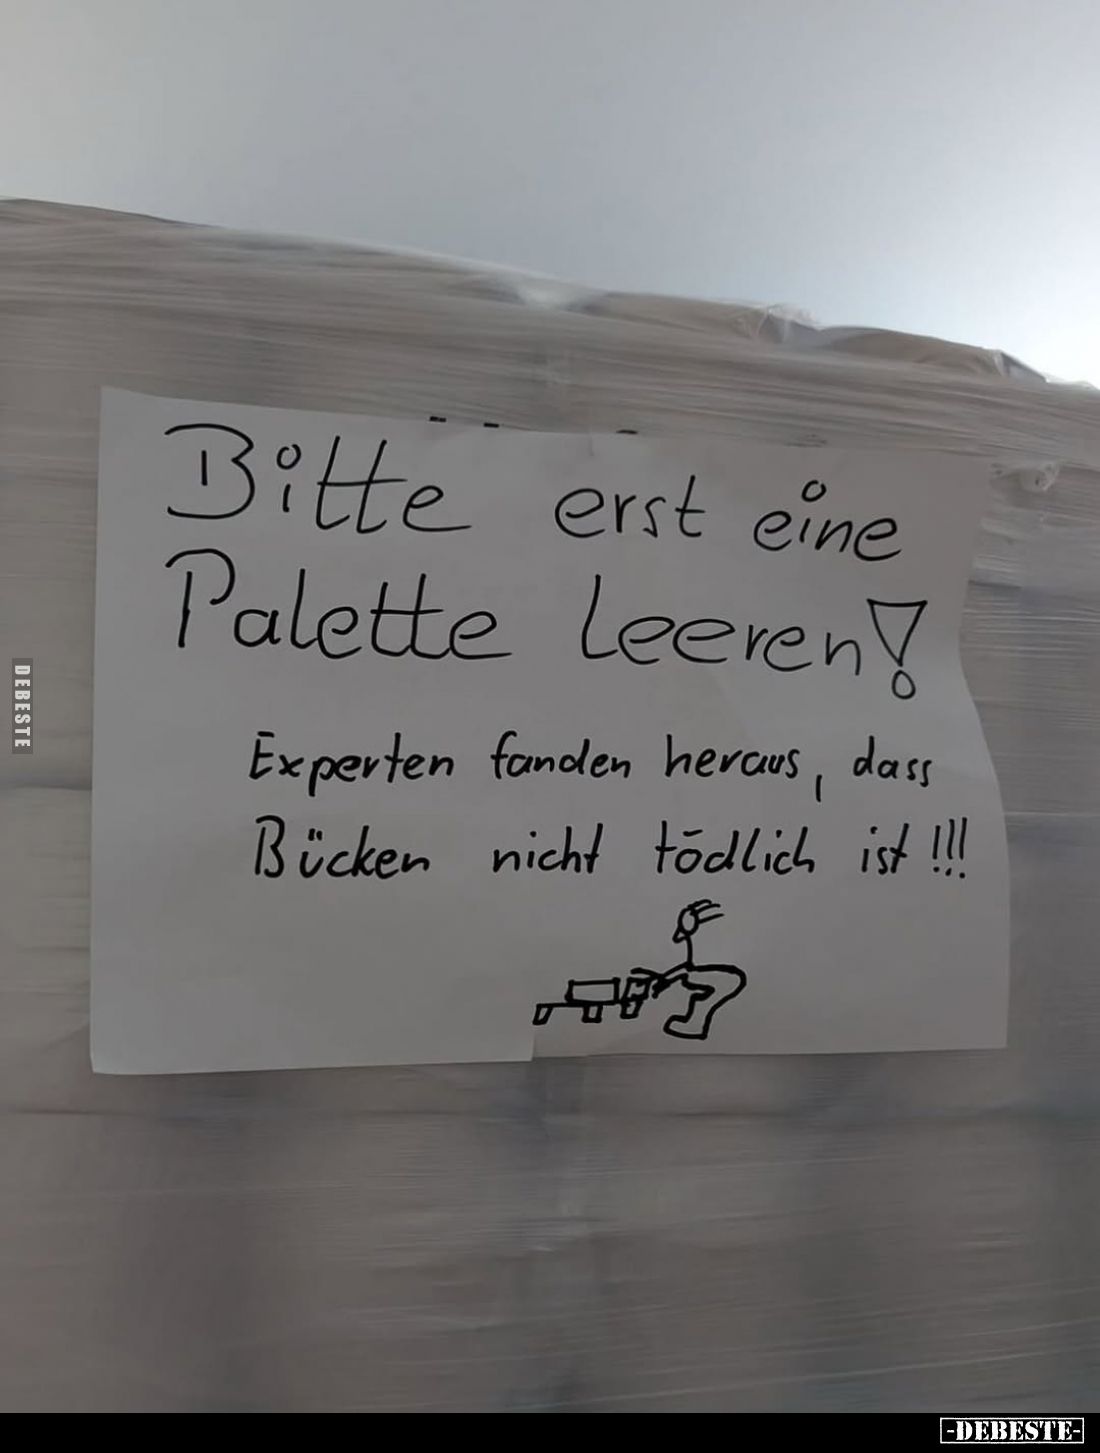 Bitte erst eine
Palette leeren!
Experten fanden heraus, dass
Bücken nicht tödlich ist!!!
DEBESTE
-DEBESTE-